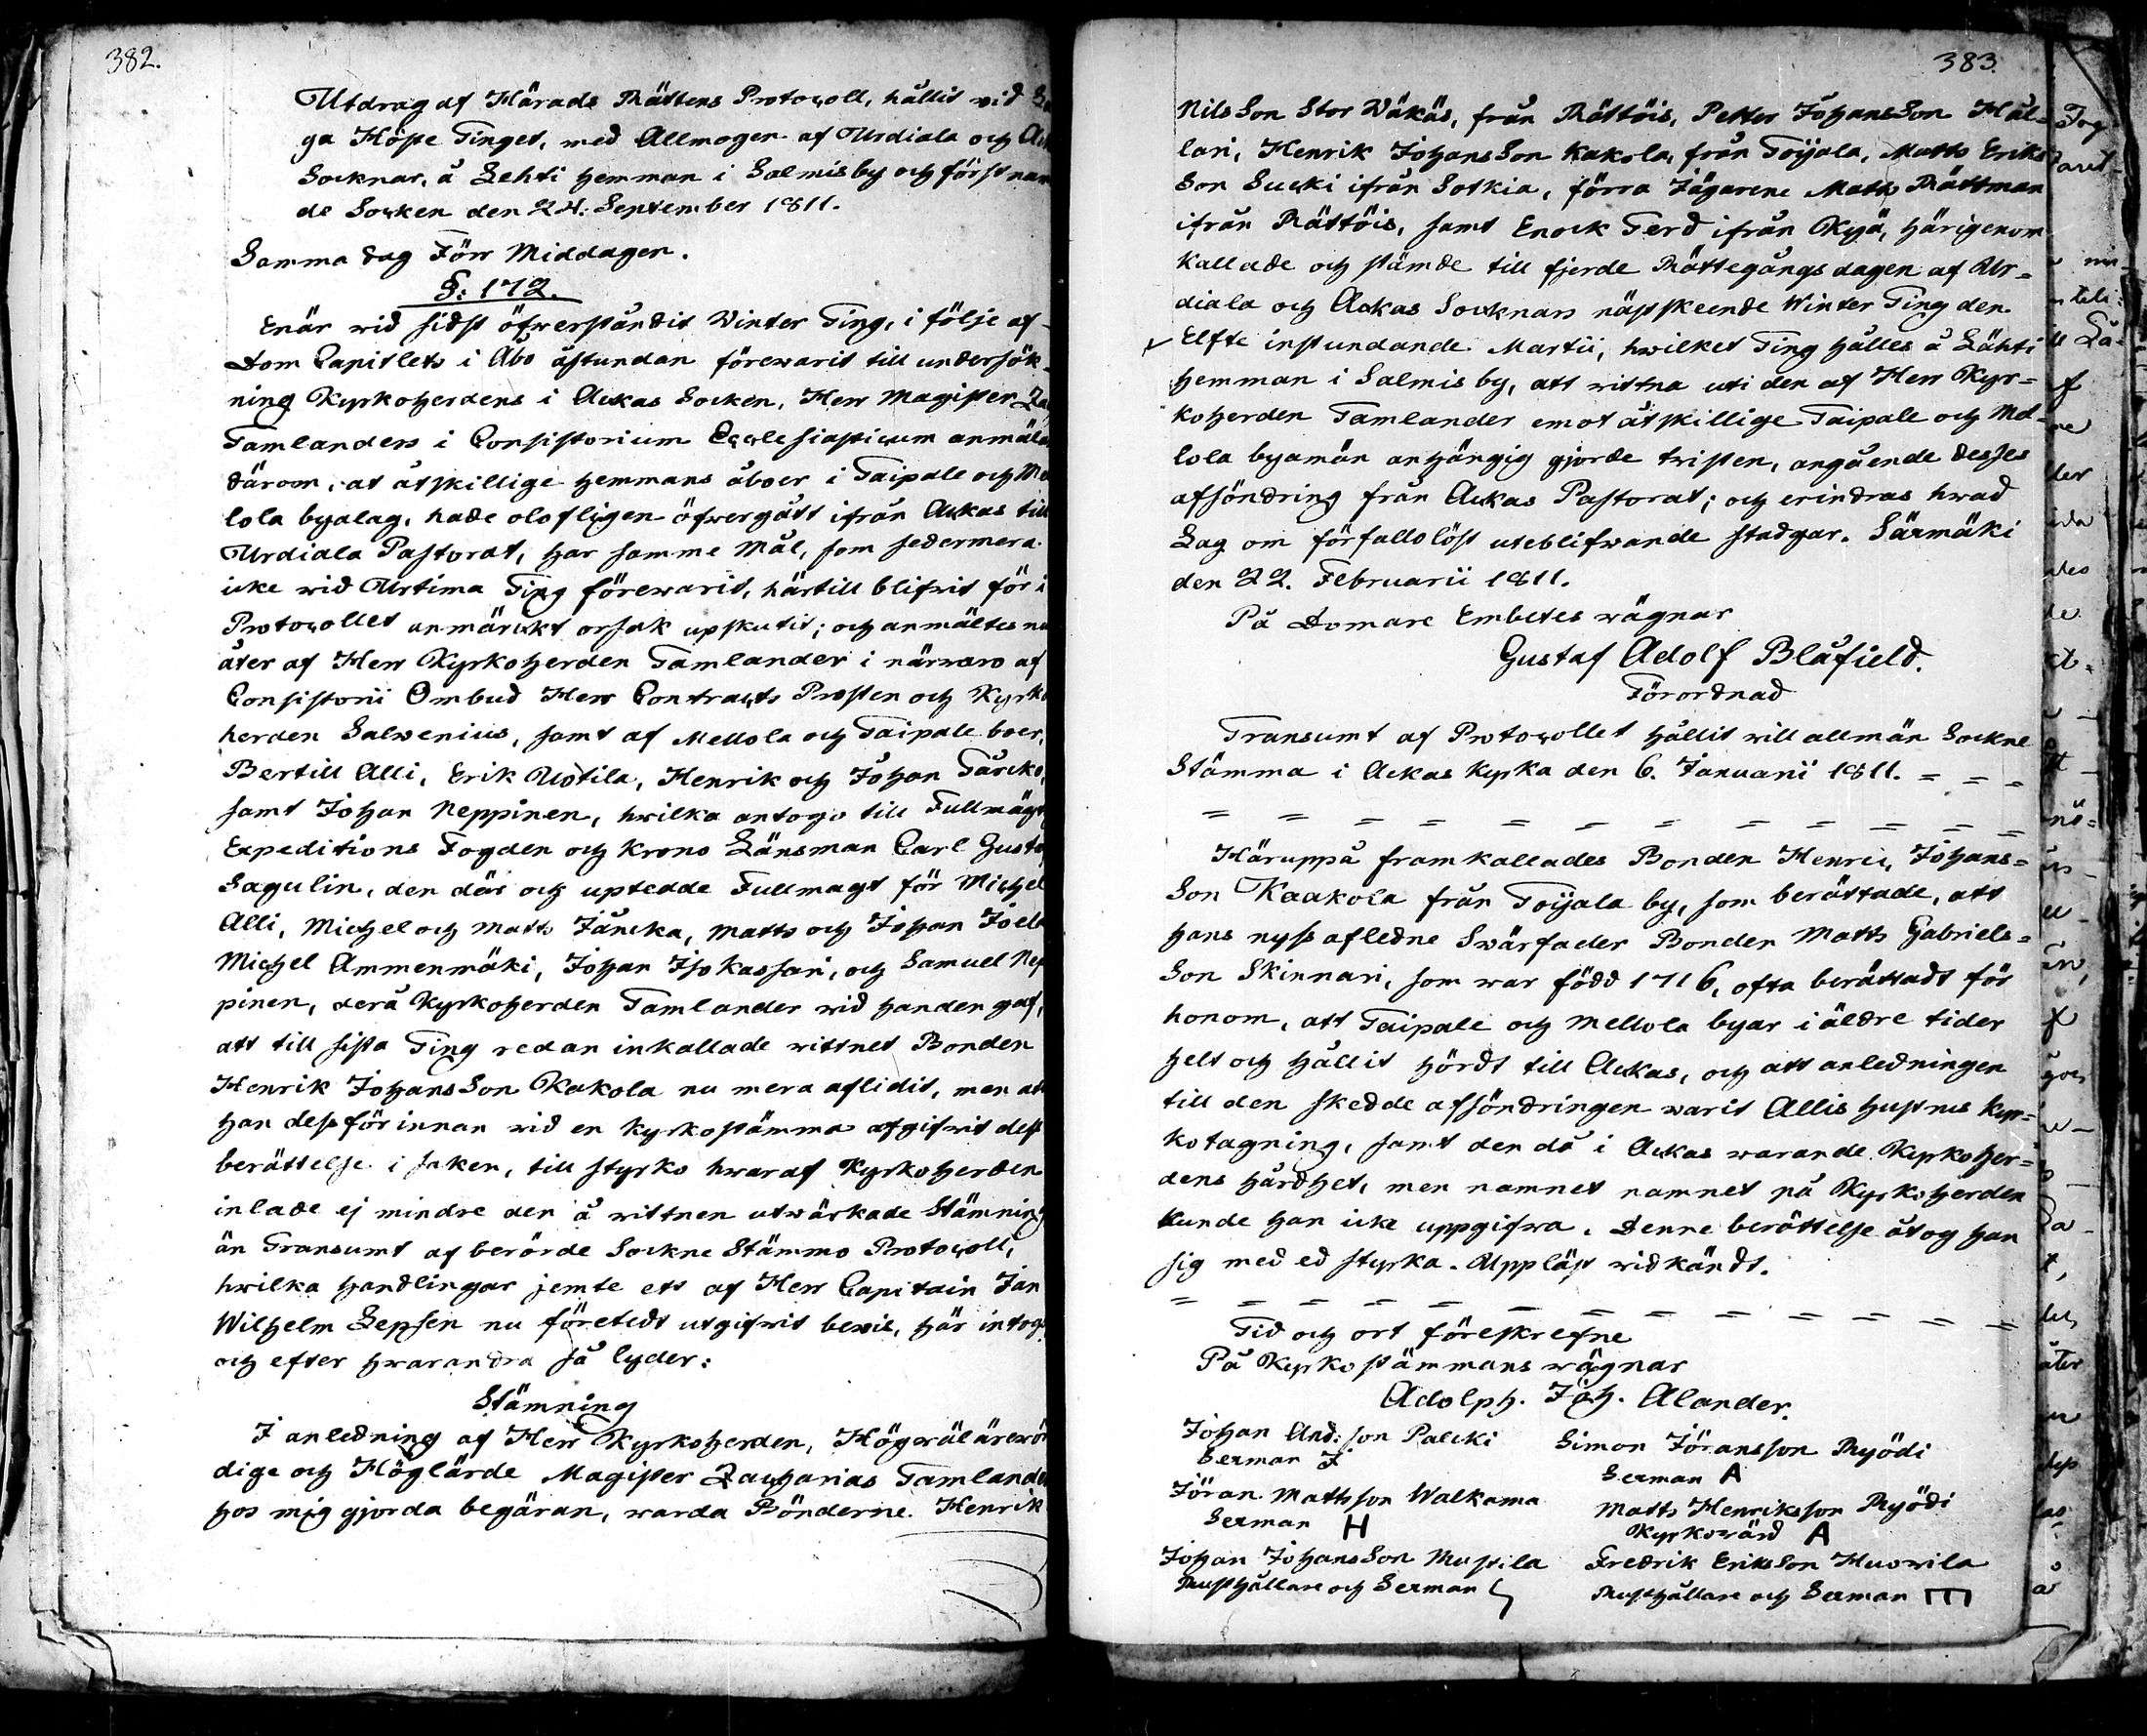 382.
Utdrag af Härads Rättens Protocoll, hållit wid
ga Höste Tinget, med Allmogen af Urdiala och
Socknar, å Lehti hemman i Salmis by och först nam
de Socken den 24. September 1811.
Samma dag Förr Middagen.
§: 172.
Enär wid sidst öfwerståndit Winter Ting, i följe af
Dom Capitlets i Åbo åstundan förewarit till undersök-
ning Kyrkoherdens i Ackas Socken, Herr Magister
Tamlanders i Consistorium Ecclesiasticum anmälan
därom, at åtskillige hemmans åboer i Taipale och
lola byalag, hade olofligen öfwergått ifrån Ackas till
Urdiala Pastorat, har samme Mål, som sedermera
icke wid Urtima Ting förewarit, härtill blifwit för i
Protocollet anmärckt orsak upskutit; och anmältes nu
åter af Herr Kyrkoherden Tamlander i närwaro af
Consistorii Ombud Herr Contracts Prosten och Kyrko
herden Salwenius, samt af Mellola och Taipale boer,
Bertill Alli, Erik Uotila, Henrik och Johan Tärcko,
samt Johan Neppinen, hwilka antogo till Fullmägt
Expeditions Fogden och Krono Länsman Carl Gustaf
Sagulin, den där och uptedde Fullmagt för Michel
Alli, Michel och Matts Jäncka, Matts och Johan
Michel Ammenmäki, Johan Iso Kassari, och Samuel Nep
pinen, derå Kyrkoherden Tamlander wid handen gaf,
att till sista Ting redan inkallade wittnet Bonden
Henrik Johans Son Kakola nu mera aflidit, men att
han dessförinnan wid en kyrkostämma afgifwit dess
berättelse i saken, till styrko hwaraf Kyrkoherden
inlade ej mindre den å wittnen utwärkade Stämning
än Transumt af berörde Sockne Stämmo Protocoll,
hwilka handlingar jemte ett af Herr Capitain Jan
Wilhelm Jepsen nu företedt utgifwit bewis, här intogs
och efter hwarandra så lyder:
Stämning
I anledning af Herr Kyrkoherden, Högwälärewör
dige och Höglärde Magister Zacharias Tamlanders
hos mig gjorda begäran, warda Bönderne Henrik
383.
Nils Son Stor Wäkäs, från Rättöis, Petter Johans Son Häl-
lari, Henrik Johans Son Kakola, från Toijala, Matts Eriks
Son Sucki ifrån Sotkia, förra Jägarene Matts Rättman
ifrån Rättöis, samt Enock Terd ifrån Kyjä, härigenom
kallade och stämde till fjerde Rättegångs dagen af Ur-
diala och Ackas Socknars näst skeende Winter Ting den
Elfte instundande Martii, hwilket Ting hålles å Lähti
hemman i Salmis by, att wittna uti den af Herr Kyr-
koherden Tamlander emot åtskillige Taipale och Mel-
lola byamän anhängig gjorde twisten, angående desses
afsöndring från Ackas Pastorat; och erindras hwad
Lag om förfallolöst uteblifwande stadgar. Särmäki
den 22. Februarii 1811.
På Domare Embetes wägnar
Gustaf Adolf Blåfield.
Förordnad
Transumt af Protocollet hållit will allmän Sockne
Stämma i Ackas kyrka den 6. Januarii 1811. = = =
= = = = = = = = = = =
Häruppå framkallades Bonden Henric Johans=
Son Kaakola från Toijala by, som berättade, att
hans nyss afledne Swärfader Bonden Matts Gabriels=
Son Skinnari, som war född 1716, ofta berättadt för
honom, att Taipale och Mellola byar i äldre tider
helt och hållit hördt till Ackas, och att anledningen
till den skedde afsöndringen warit Allis hustrus kyr=
kotagning, samt den då i Ackas warande Kyrkoher=
dens hårdhet, men namnet namnet på Kyrkoherden
kunde han icke uppgifwa. Denne berättelse åtog han
sig med ed styrka. Uppläst widkändt.
= = = = = = = = = = = =
Tid och ort föreskrefne
På Kyrkostämmans wägnar
Adolph. Joh. Alander.
Johan And: son Palcki
Sexman I
Simon Jöransson Ryödi
Sexman A
Jöran Mattsson Walkama
Sexman H
Matts Henriksson Ryödi
Kyrkowärd A
Johan Johans Son Mustila
Rusthållare och Sexman
Fredrik Eriks Son Huowila
Rusthållare och Sexman m